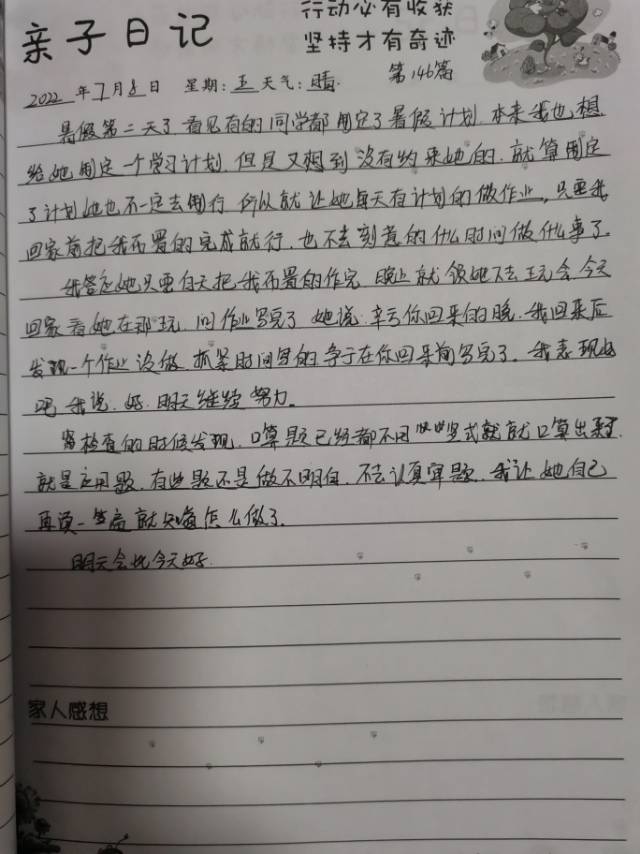 亲子日记
行动必有收获
坚持才有奇迹
第146篇
2022年7月8日 星期:五 天气:晴
暑假第二天了.看见有的同学都制定了暑假计划.本来我也想
给她制定一个学习计划.但是又想到没有约束她的.就算制定
了计划她也不一定去制行.所以就让她每天有计划的做作业.只要我
回家前把我布置的完成就行.也不去刻意的什么时间做什么事了.
我答应她只要白天把我布置的作完.晚上就领她下去玩会.今天
回家看她在那玩.问作业写完了.她说.辛亏你回来的晚.我回来后
发现一个作业没做.抓紧时间写的.争于在你回来前写完了.我表现好
吧.我说.好.明天继续努力.
当检查的时候发现.口算题已经都不用竖式就就口算出来了.
就是应用题.有些题还是做不明白.不去认真审题.我让她自己
再读一篇就知道怎么做了.
明天会比今天好.
家人感想